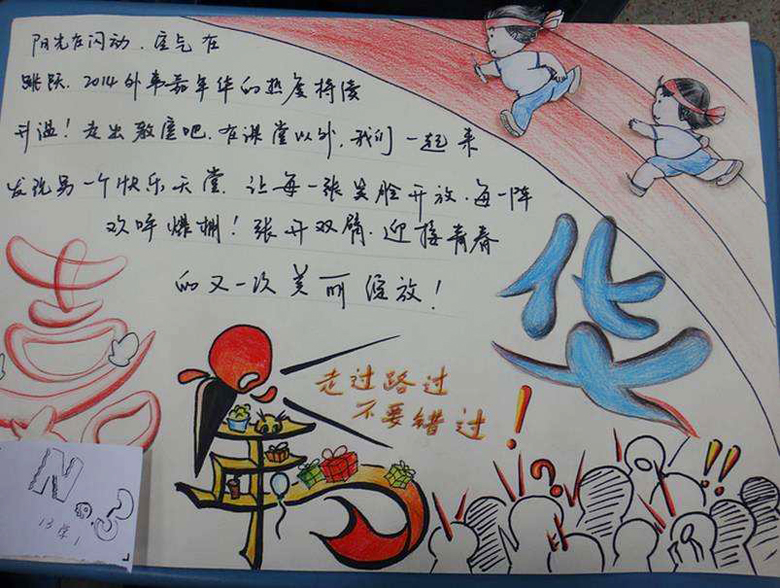 阳光在闪动.空气在
跳跃.2014外事嘉年华的热度持续
升温!走出教室吧.在课堂以外,我们一起来
发现另一个快乐天堂.让每一张笑脸开放.每一阵
欢呼爆棚!张开双臂.迎接青春
的又一次美丽绽放!
嘉年华
走过路过
不要错过!
?
!!
No.3